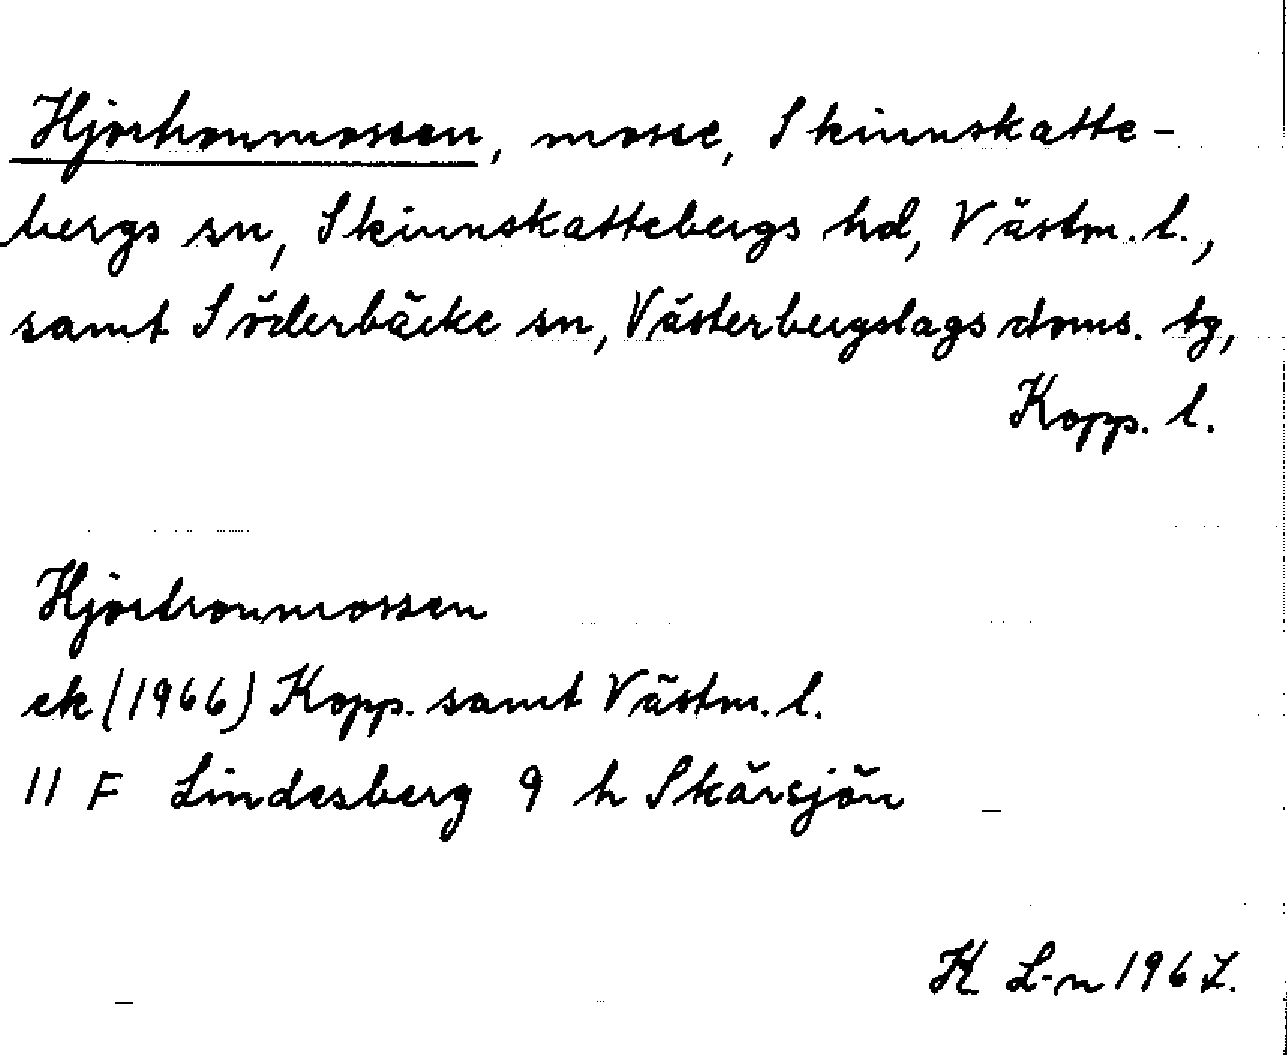 Hjortronmossen, mosse, Skinnskatte-
bergs sn, Skinnskattebergs hd, Västm. l.,
samt Söderbärke sn, Västerbergslags doms. tg,
Kopp. l.
Hjortronmossen
ek (1966) Kopp. samt Västm. l.
11 F Lindesberg 9 h Skärsjön
K L-n 1967.